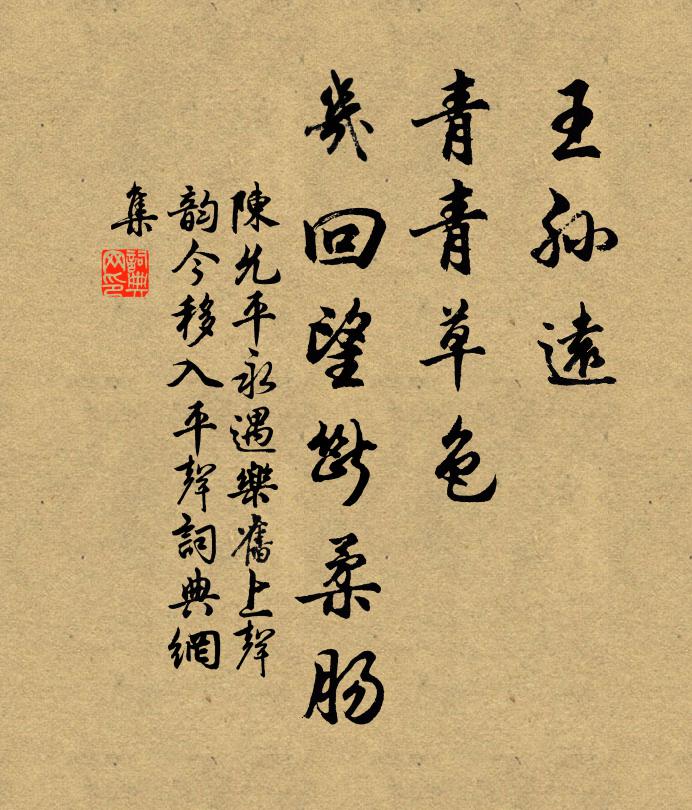 王孫遠
青青草色
幾回望斷柔腸
陳允平永遇樂舊上聲
韵今移入平聲詞典網
集
詞典網印